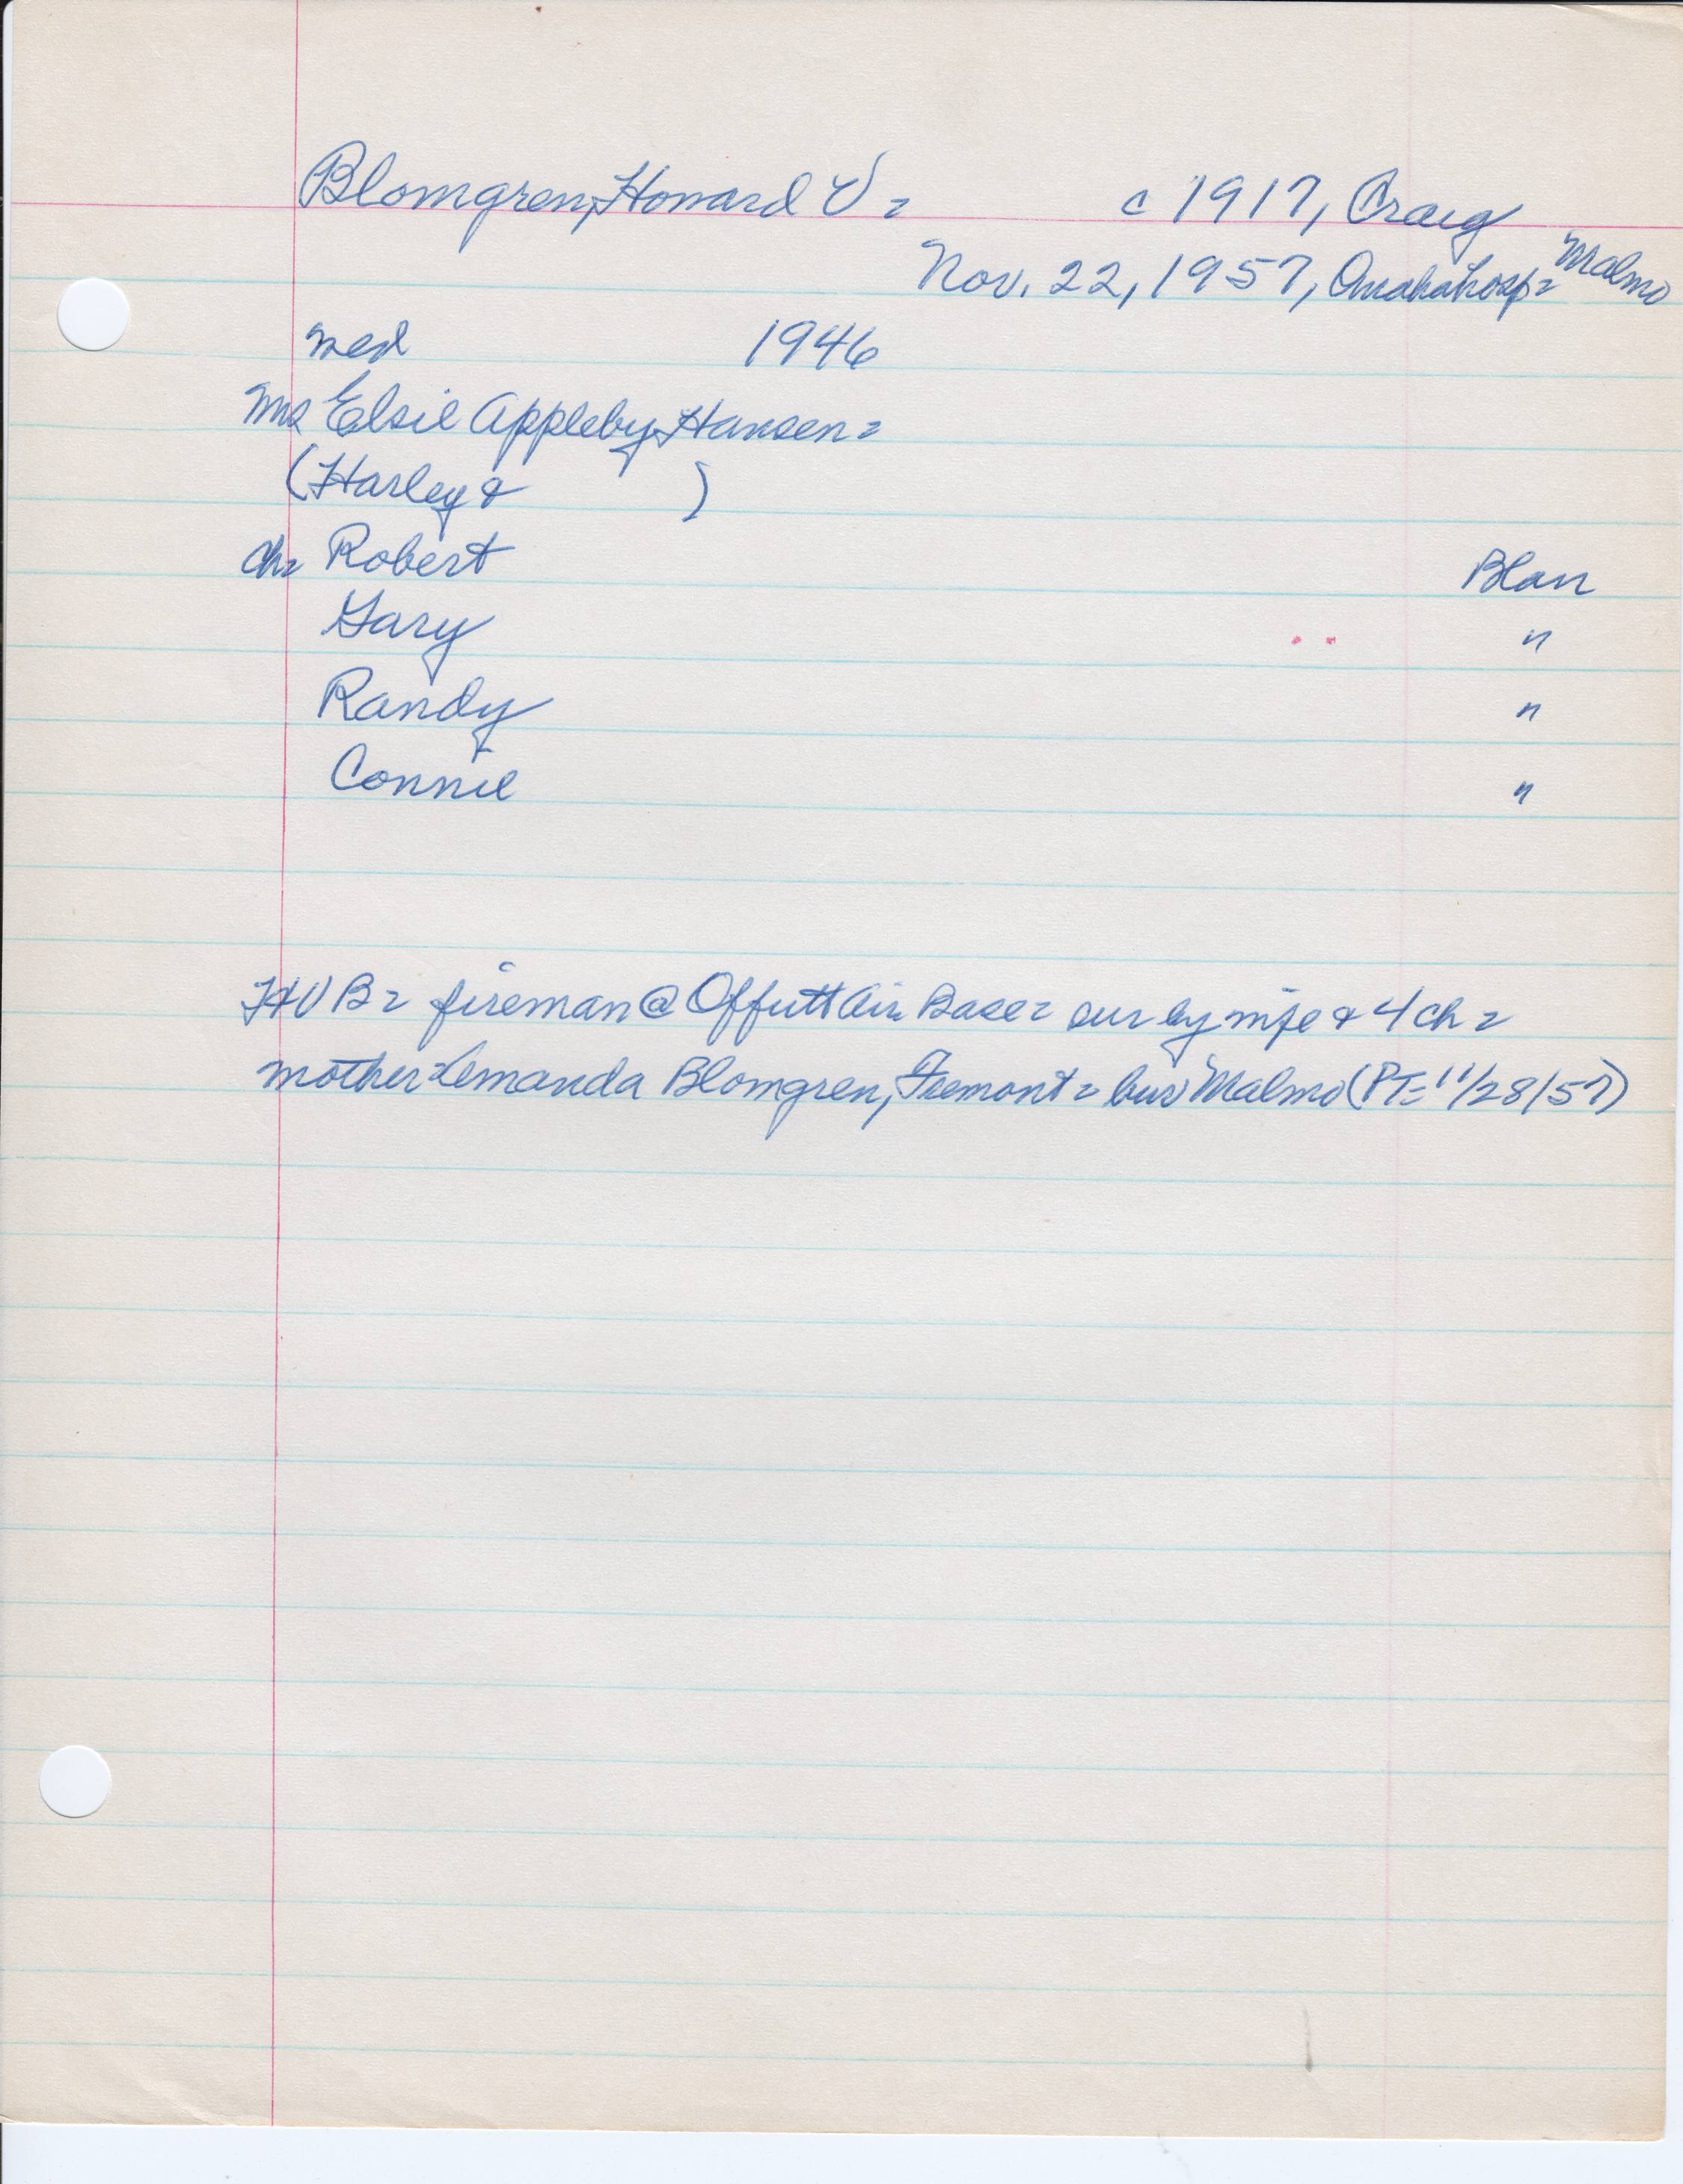 Blomgren, Howard V = c 1917, Craig
Nov. 22, 1957, Omaha hosp = Malmo
wed 1946
Mrs Elsie Appleby Hansen =
(Harley & )
ch= Robert Blair
Gary "
Randy "
Connie "
HVB = fireman @ Offutt Air Base = sur by wife & 4 ch =
mother = Lemanda Blomgren, Fremont = bur Malmo (PT= 11/28/57)